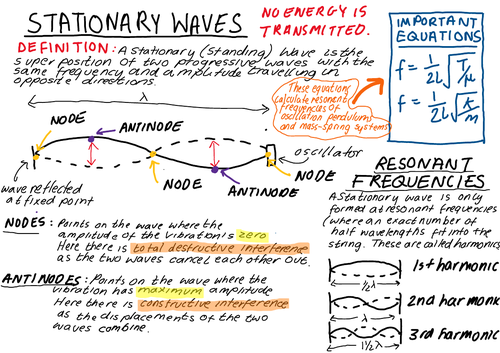 STATIONARY WAVES
NO ENERGY IS
TRANSMITTED.
DEFINITION: A stationary (standing) wave is the
super position of two progressive waves with the
same frequency and amplitude travelling in
opposite directions.
IMPORTANT
EQUATIONS
f = 1/2l √T/μ
f = 1/2l √k/m
These equations
calculate resonant
frequencies of
oscillation pendulums
and mass-spring systems
λ
NODE
ANTINODE
oscillator
NODE
NODE
ANTINODE
wave reflected
at fixed point
NODES: Points on the wave where the
amplitude of the vibration is zero
Here there is total destructive interference
as the two waves cancel each other out.
ANTINODES: Points on the wave where the
vibration has maximum amplitude
Here there is constructive interference
as the displacements of the two
waves combine.
RESONANT
FREQUENCIES
A stationary wave is only
formed at resonant frequencies
(where an exact number of
half wavelengths fit into the
string. These are called harmonics
1st harmonic
1/2λ
2nd harmonic
λ
3rd harmonic
1 1/2λ